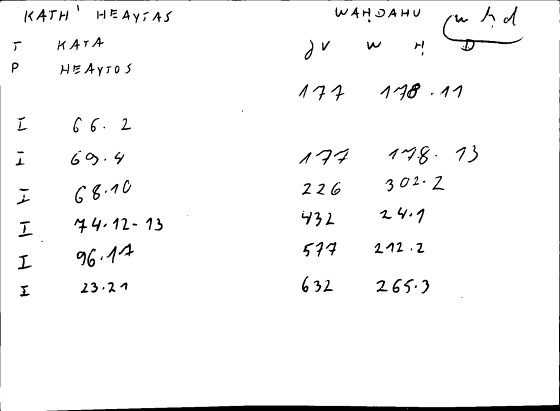 KATH' HEAYTAS WAḤDAHU w ḥ d
T KATA JV W Ḥ D
P HEAYTOS
177 178.11
I 66.2
I 69.4 177 178.13
I 68.10 226 302.2
I 74.12-13 432 24.1
I 96.17 577 212.2
I 23.21 632 265.3